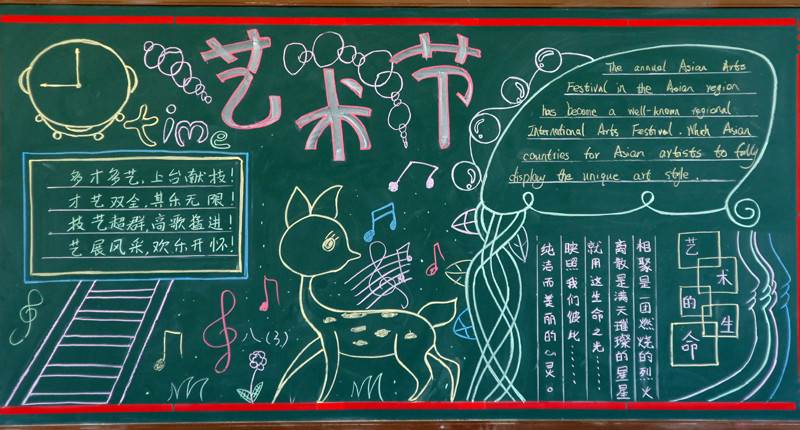 艺术节
time
多才多艺,上台献技!
才艺双全,其乐无限!
技艺超群,高歌猛进!
艺展风采,欢乐开怀!
八(3)
The annual Asian Arts
Festival in the Asian region
has become a well-known regional
International Arts Festival. Which Asian
countries for Asian artists to fully
display the unique art style.
艺术的生命
相聚是一团燃烧的烈火
离散是满天璀璨的星星
就用这生命之光……
映照我们彼此……
纯洁而美丽的心灵。